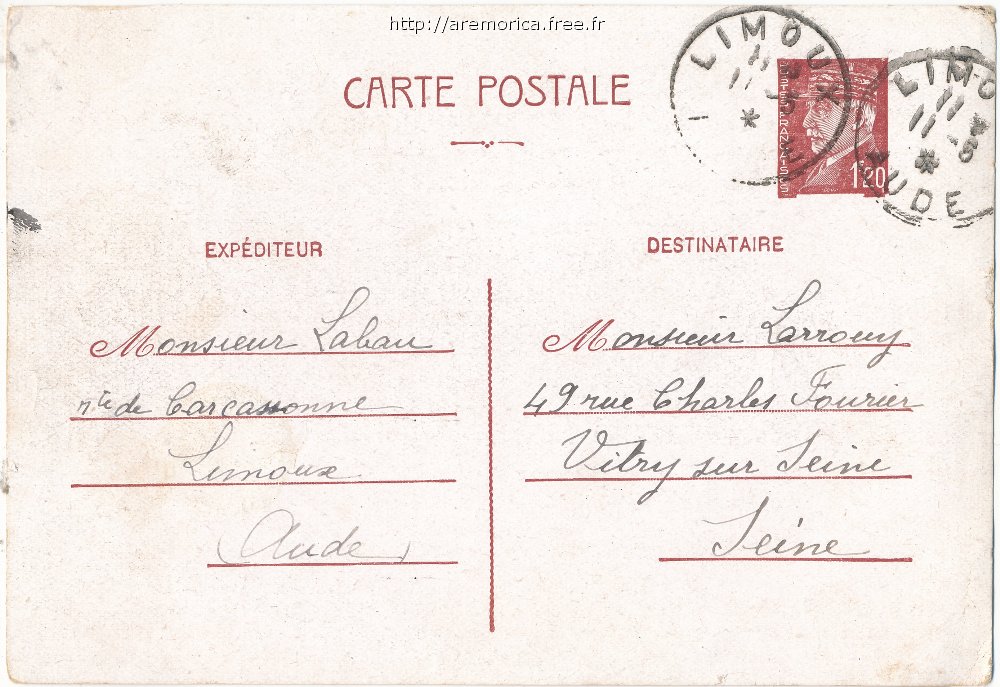 http://aremorica.free.fr
CARTE POSTALE
LIMOUX
11
11 -5
AUDE
POSTES FRANÇAISES
1F20
LIMOUX
11
11 -5
AUDE
EXPÉDITEUR
Monsieur Labau
rte de Carcassonne
Limoux
(Aude)
DESTINATAIRE
Monsieur Larrouy
49 rue Charles Fourier
Vitry sur Seine
Seine